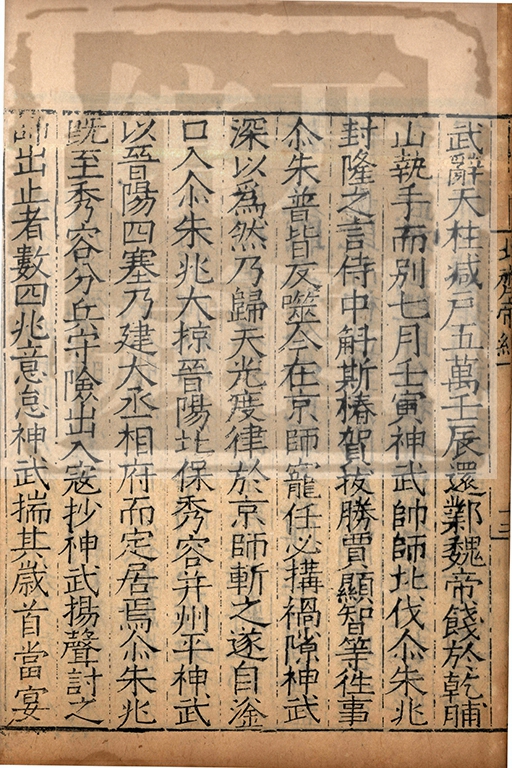 武辭天柱减戶五萬壬辰還鄴魏帝餞於乾脯
山執手而別七月壬寅神武帥師北伐尒朱兆
封隆之言侍中斛斯椿賀拔勝賈顯智等往事
尒朱普皆反噬今在京師寵任必搆禍隙神武
深以爲然乃歸天光度律於京師斬之遂自滏
口入尒朱兆大掠晉陽北保秀容并州平神武
以晉陽四塞乃建大丞相府而定居焉尒朱兆
旣至秀容分兵守險出入寇抄神武揚聲討之
師出止者數四兆意怠神武揣其歲首當宴
北齊帝紀